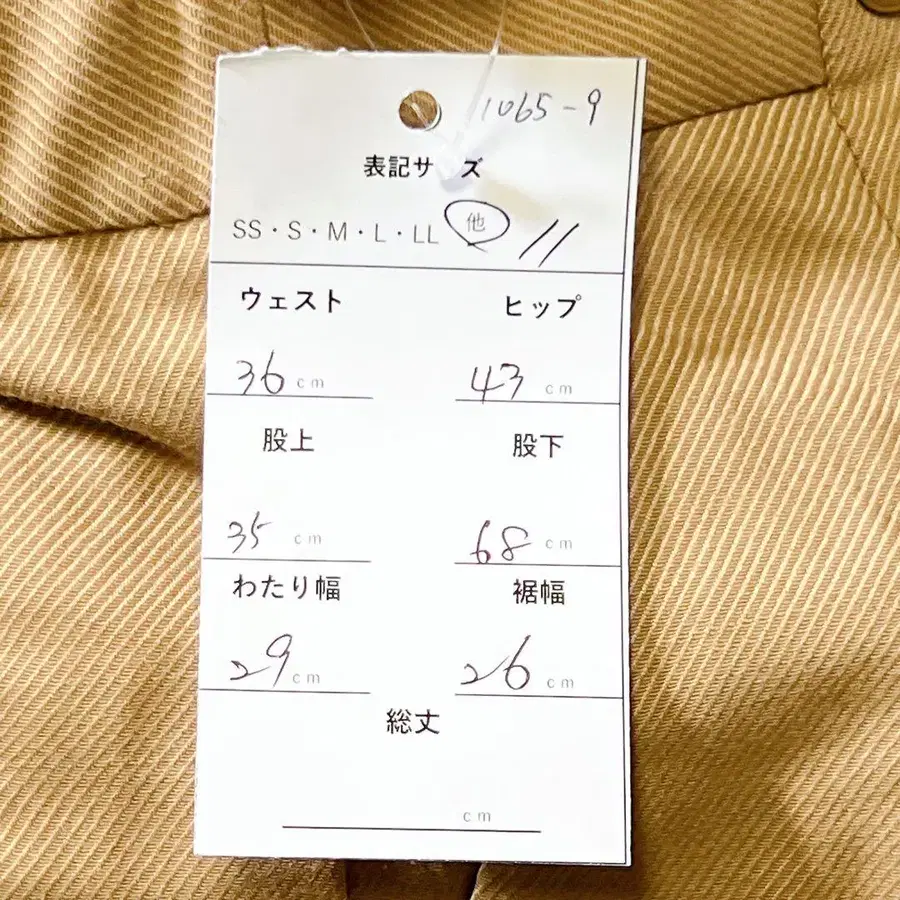 1065-9
表記サイズ
SS・S・M・L・LL 他 11
ウェスト ヒップ
36 cm 43 cm
股上 股下
35 cm 68 cm
わたり幅 裾幅
29 cm 26 cm
総丈
cm